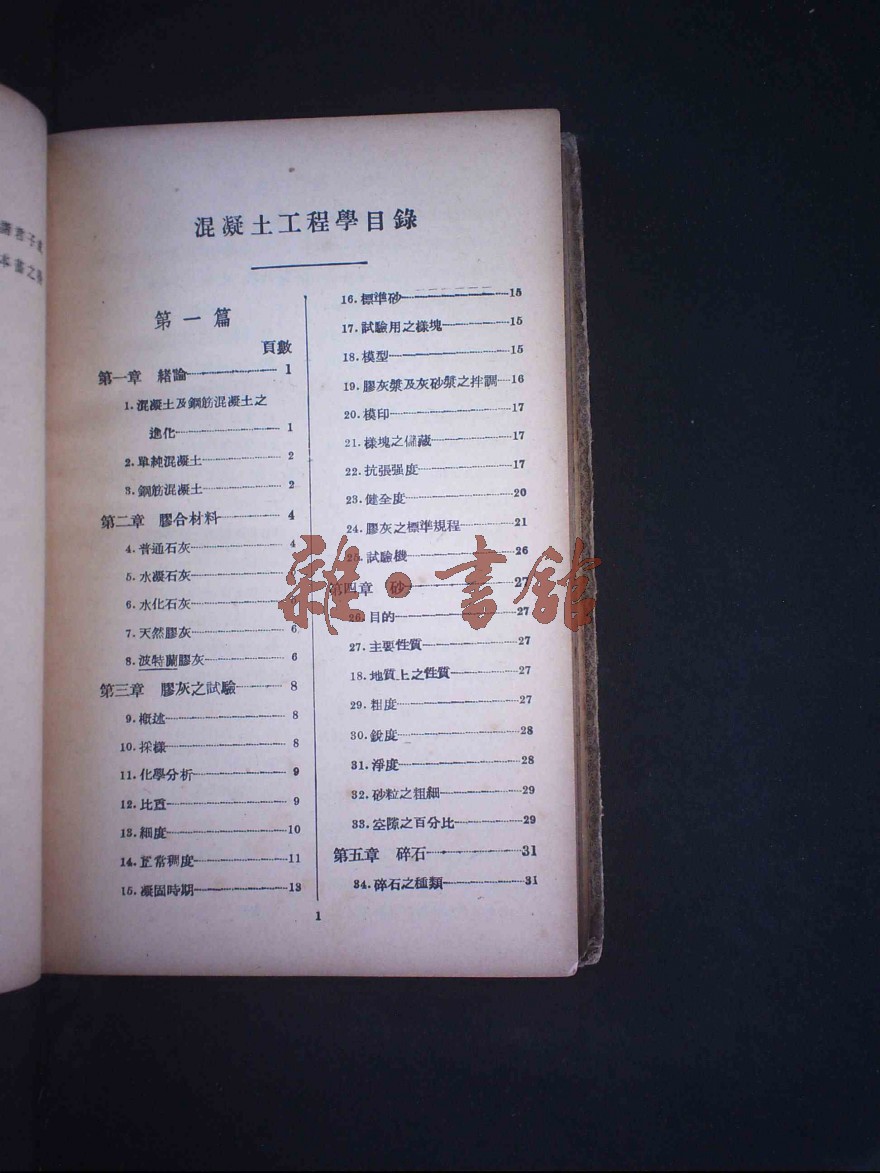 混凝土工程學目錄
第一篇
頁數
第一章 緒論 1
1. 混凝土及鋼筋混凝土之
進化 1
2. 單純混凝土 2
3. 鋼筋混凝土 2
第二章 膠合材料 4
4. 普通石灰 4
5. 水凝石灰
6. 水化石灰
7. 天然膠灰 6
8. 波特蘭膠灰 6
第三章 膠灰之試驗 8
9. 概述 8
10. 採樣 8
11. 化學分析 9
12. 比重 9
13. 細度 10
14. 正常稠度 11
15. 凝固時期 13
16. 標準砂 15
17. 試驗用之樣塊 15
18. 模型 15
19. 膠灰漿及灰砂漿之拌調 16
20. 模印 17
21. 樣塊之儲藏 17
22. 抗張强度 17
23. 健全度 20
24. 膠灰之標準規程 21
25. 試驗機 26
第四章 砂 27
26. 目的 27
27. 主要性質 27
18. 地質上之性質 27
29. 粗度 27
30. 銳度 28
31. 淨度 28
32. 砂粒之粗細 29
33. 空隙之百分比 29
第五章 碎石 31
34. 碎石之種類 31
1
雜·書館